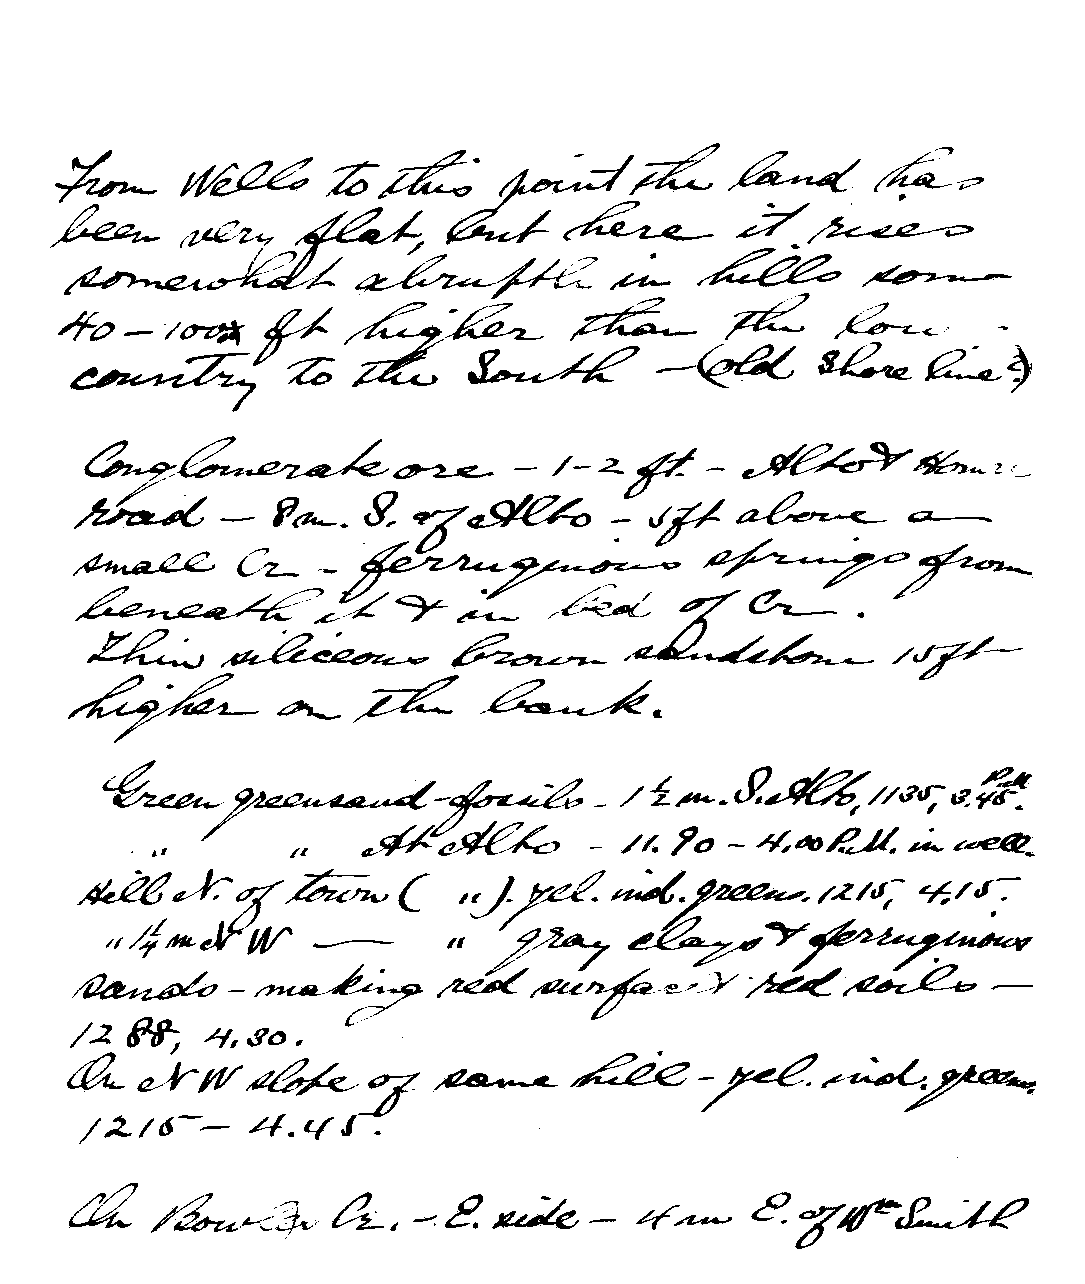 From Wells to this point the land has
been very flat, but here it rises
somewhat abruptly in hills some
40 - 100 ft higher than the low
country to the South - (old Shore line?)
Conglomerate ore - 1-2 ft. - Alto &
road - 8 m. S. of Alto - 5 ft above a
small Cr - ferruginous springs from
beneath it & in bed of Cr.
Thin siliceous brown sandstone 15 ft
higher on the bank.
Green greensand - fossils - 1 1/2 m. S. Alto, 1135, 3.45 P.M.
" " At Alto - 11.90 - 4.00 P.M. in well.
Hill N. of town ( " ). yel. ind. greens. 1215, 4.15.
" 1 1/4 m N W — " gray clays & ferruginous
sands - making red surface & red soils -
1288, 4.30.
On N W slope of same hill - yel. ind. greens.
1215 - 4.45.
On Cr. - E. side - 4 m E. of Wm Smith